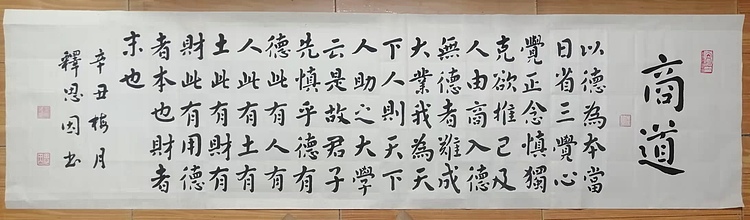 商道
以德為本當
日省三覺心
覺正念慎獨
克欲推己及
人由商入德
無德者難成
大業我為天
下人則天下
人助之大學
云是故君子
先慎乎德有
德此有人有
人此有土有
土此有財有
財此有用德
者本也財者
末也
辛丑梅月
釋恩因书